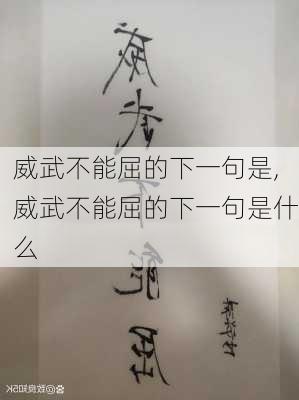 威武不能屈
威武不能屈的下一句是,
威武不能屈的下一句是什
么